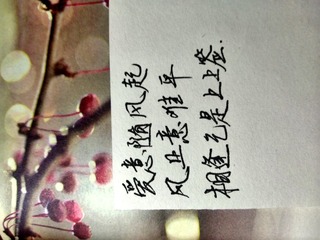 爱意随风起
风止意难平
相逢已是上上签.